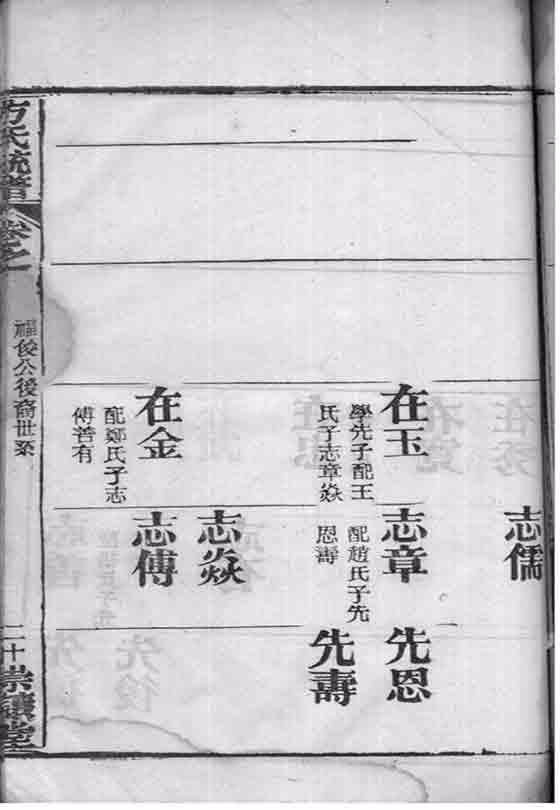 志儒
在玉
學先子配王
氏子志章焱
志章
配趙氏子先
恩壽
先恩
先壽
志焱
在金
配鄭氏子志
傅善有
志傅
方氏統譜
卷之一
福俊公後裔世系
二十
堂